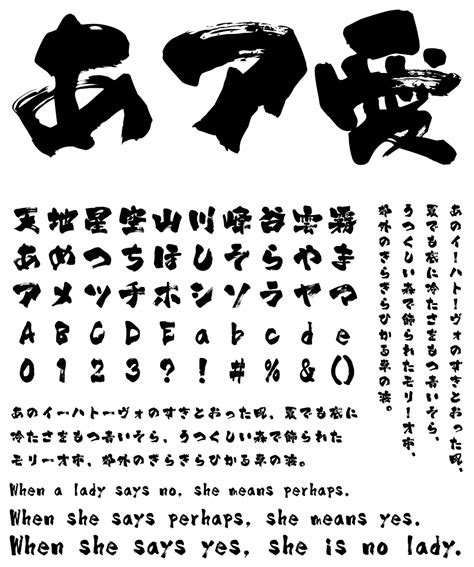 あア愛
天地星空山川峰谷雲霧
あめつちほしそらやま
アメツチホシソラヤマ
A B C D E a b c d e
0 1 2 3 ? ! # % & ()
あのイーハトーヴォのすきとおった風、
夏でも底に冷たさをもつ青いそら、
うつくしい森で飾られたモリーオ市、
郊外のぎらぎらひかる草の波。
あのイーハトーヴォのすきとおった風、夏でも底に
冷たさをもつ青いそら、うつくしい森で飾られた
モリーオ市、郊外のぎらぎらひかる草の波。
When a lady says no, she means perhaps.
When she says perhaps, she means yes.
When she says yes, she is no lady.